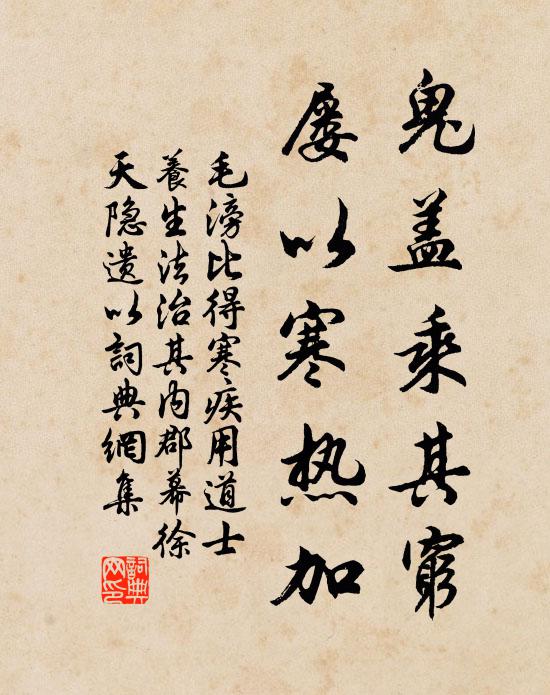 鬼盖乘其窮
屡以寒热加
毛滂比得寒疾用道士
養生法治其内郡幕徐
天隐遺以詞典網集
詞典网印